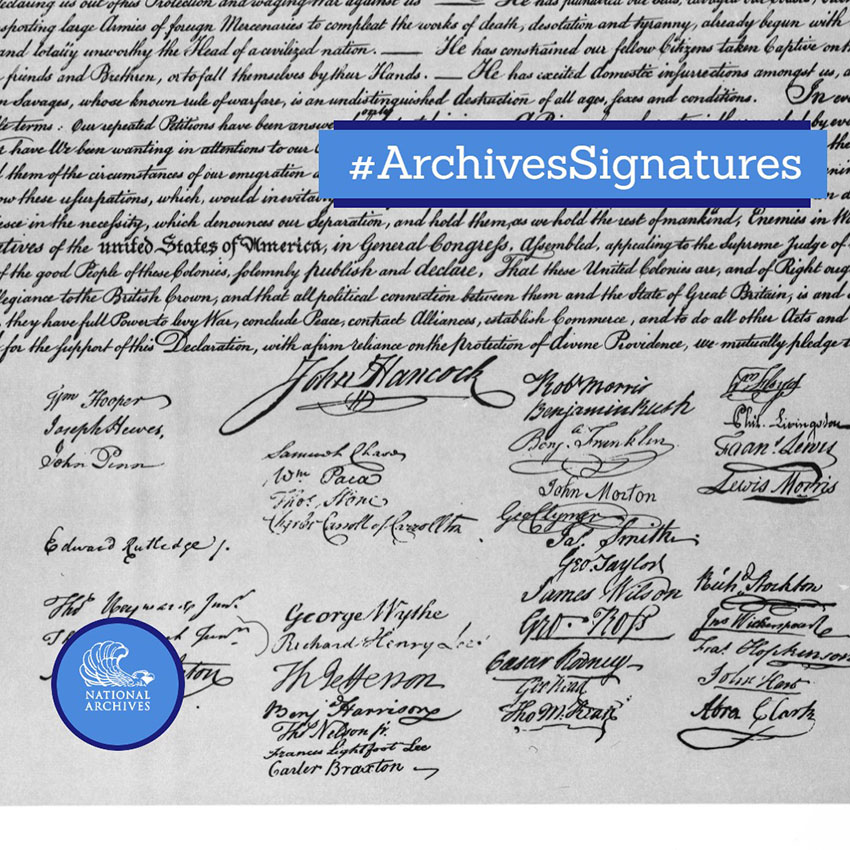 claring us out of his Protection and waging War against us — He has plundered our seas, ravaged our coasts,
sporting large Armies of foreign Mercenaries to compleat the works of death, desolation and tyranny, already begun with
and totally unworthy the Head of a civilized nation. — He has constrained our fellow Citizens taken Captive on
friends and Brethren, or to fall themselves by their Hands. — He has excited domestic insurrections amongst us,
n Savages, whose known rule of warfare, is an undistinguished destruction of all ages, sexes and conditions. In
terms: Our repeated Petitions have been answe only
have We been wanting in attentions to our
them of the circumstances of our emigration
these usurpations, which, would inevita
#ArchivesSignatures
esce in the necessity, which denounces our Separation, and hold them, as we hold the rest of mankind, Enemies in
atives of the united States of America, in General Congress, Assembled, appealing to the Supreme Judge of
of the good People of these Colonies, solemnly publish and declare, That these United Colonies are, and of Right oug
llegiance to the British Crown, and that all political connection between them and the State of Great Britain, is and
they have full Power to levy War, conclude Peace, contract Alliances, establish Commerce, and to do all other Acts and
for the support of this Declaration, with a firm reliance on the Protection of divine Providence, we mutually pledge
John Hancock
Wm Hooper
Joseph Hewes,
John Penn
Edward Rutledge
Thos Heyward Junr.
Junr.
ton
NATIONAL
ARCHIVES
Samuel Chase
Wm Paca
Thos. Stone
Charles Carroll of Carrollton
George Wythe
Richard Henry Lee
Th Jefferson
Benj Harrison
Thos Nelson jr.
Francis Lightfoot Lee
Carter Braxton
Robt Morris
Benjamin Rush
Benja. Franklin
John Morton
Geo Clymer
Jas. Smith
Geo. Taylor
James Wilson
Geo. Ross
Caesar Rodney
Geo Read
Tho M:Kean
Phil. Livingston
Frans. Lewis
Lewis Morris
Richd. Stockton
Jno Witherspoon
Fras. Hopkinson
John Hart
Abra Clark